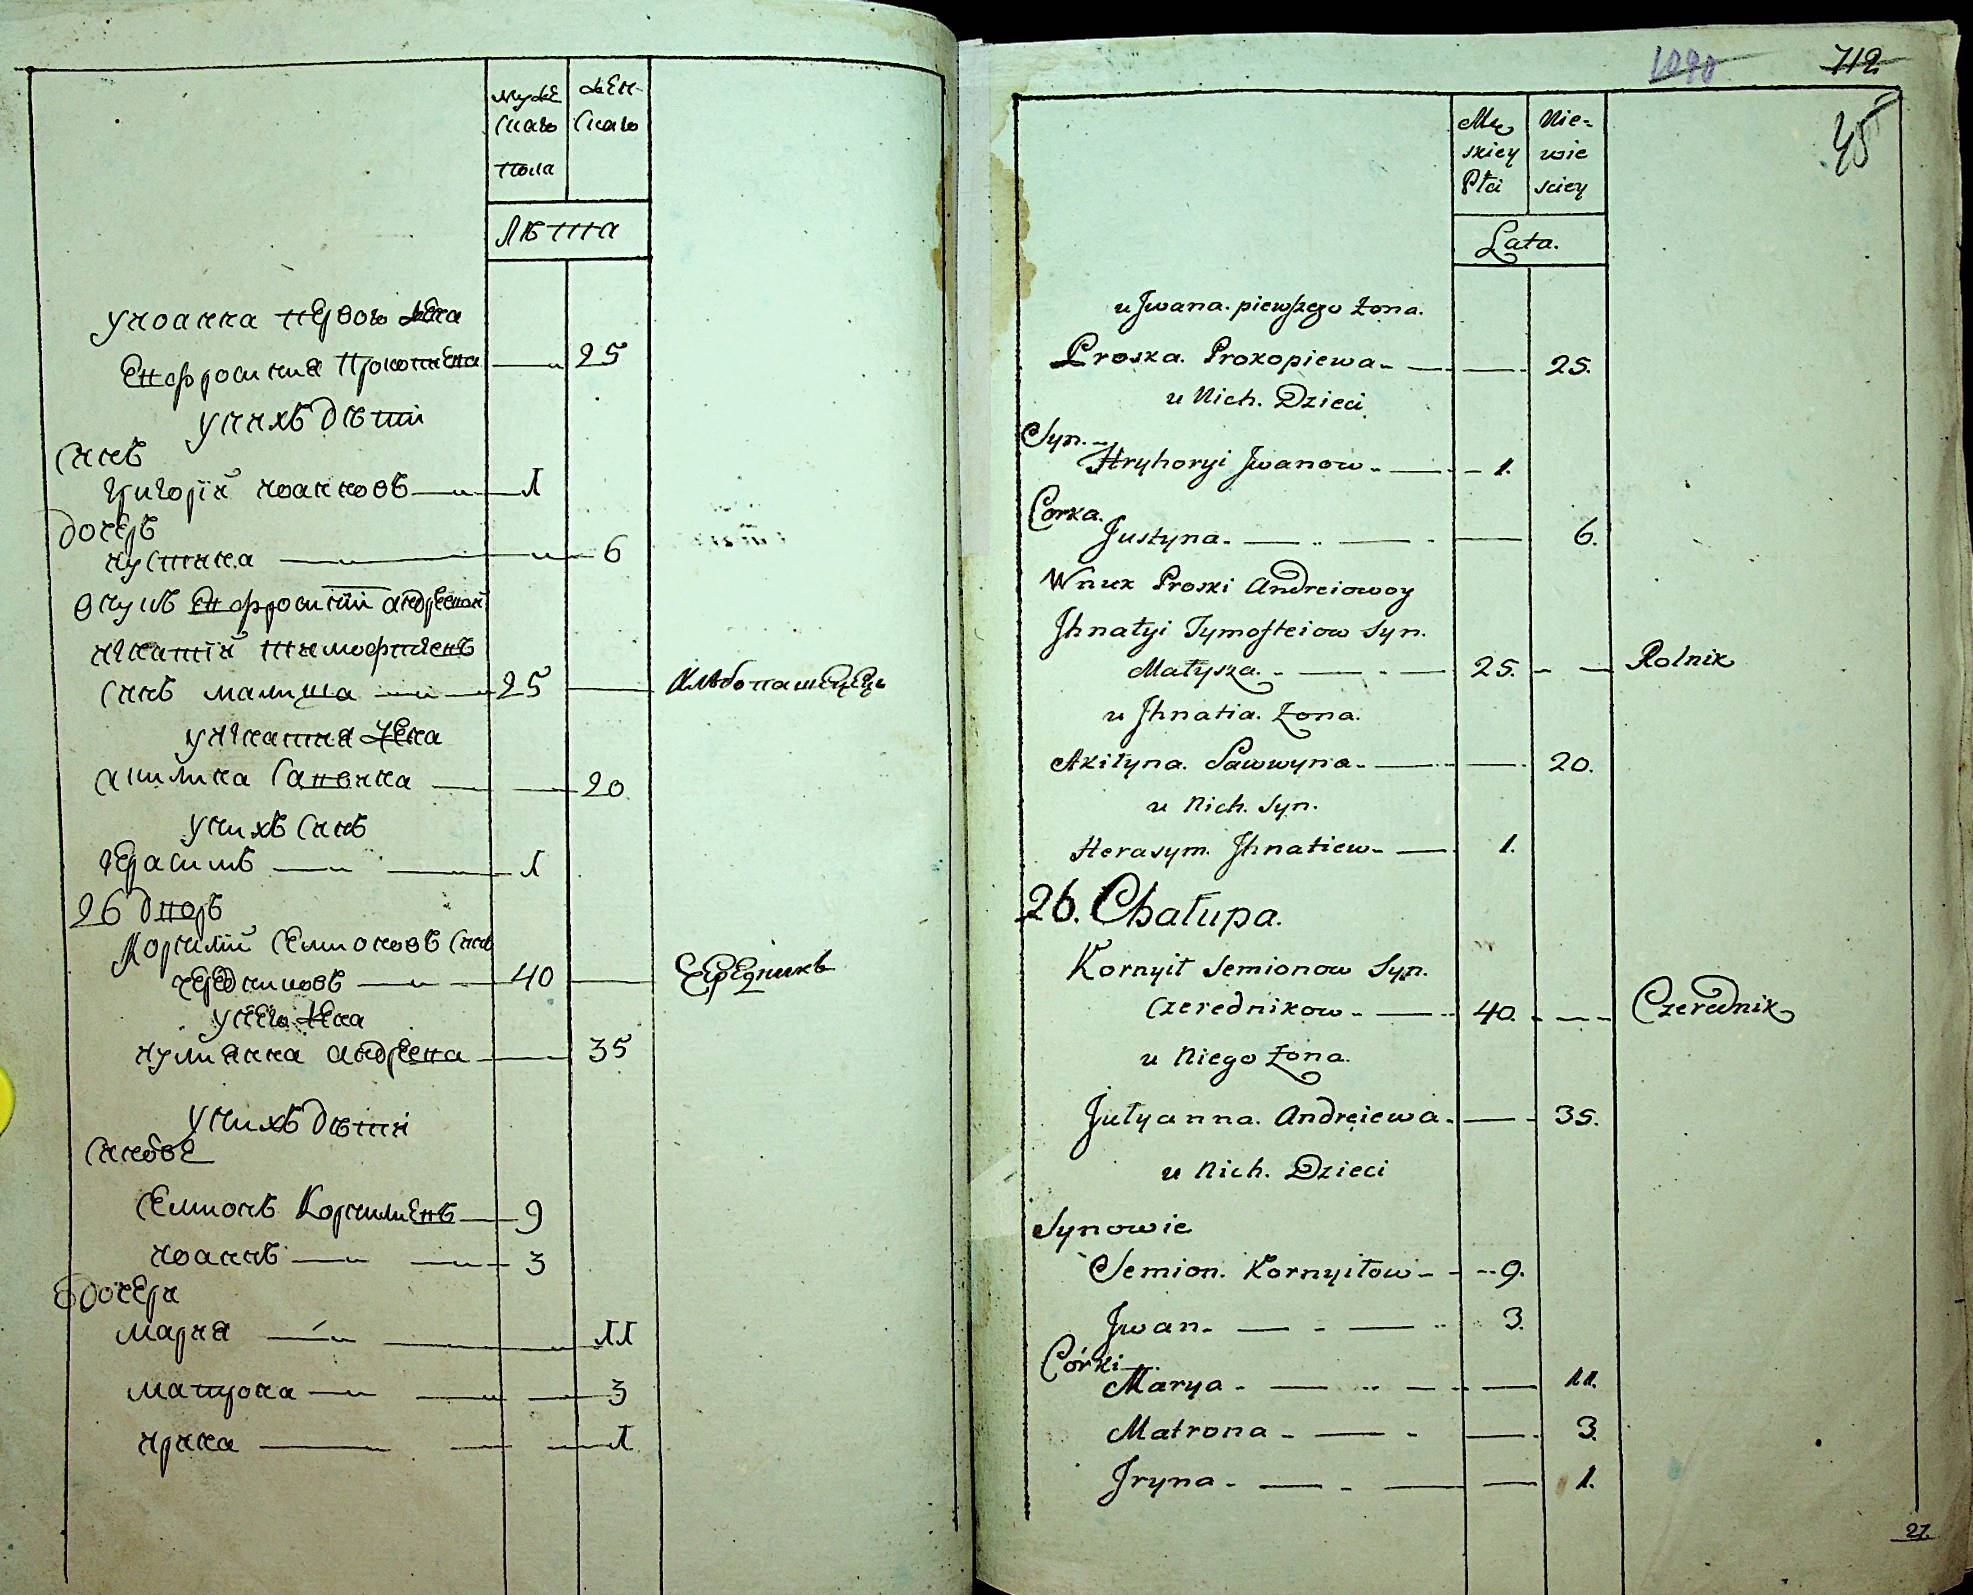 муже
скаго
пола
жен-
скаго
Лѣта
у иоанна первого жена
Евфросиниа Прокопиева 25
у нихъ дѣти
Синъ
григорій иоанновъ 1
дочерь
иустина 6
внукъ Евфросиніи андреевой
игнатій тимофѣевъ
синъ малиша 25 хлѣбопашецъ
у игнатиа жена
акилина Саввина 20
у нихъ синъ
герасимъ 1
26 дворъ
Корнилій Семионовъ синъ
чередниковъ 40 Чередникъ
у него жена
иулианна андреева 35
у нихъ дѣти
синове
Семионъ Корнилиевъ 9
иоаннъ 3
дочери
мариа 11
матрона 3
ирина 1
1090 712
45
Mę
skiey
Płci
Nie-
wie
sciey
Lata.
u Jwana. piewszego żona.
Proska. Prokopiewa 25.
u Nich. Dzieci
Syn.
Hryhoryi Jwanow 1.
Corka.
Justyna 6.
Wnuk Proski Andreiowoy
Jhnatyi Tymofteiow Syn.
Małyszka 25. Rolnik
u Jhnatia. żona.
Akiłyna. Sawwyna 20.
u Nich. Syn.
Herasym. Jhnatiew 1.
26. Chałupa.
Kornyił Semionow Syn.
Czerednikow 40. Czerednik
u Niego żona.
Jułyanna. Andreiewa 35.
u Nich. Dzieci
Synowie
Semion. Kornyiłow 9.
Jwan 3.
Córki
Marya 11.
Matrona 3.
Jryna 1.
27.